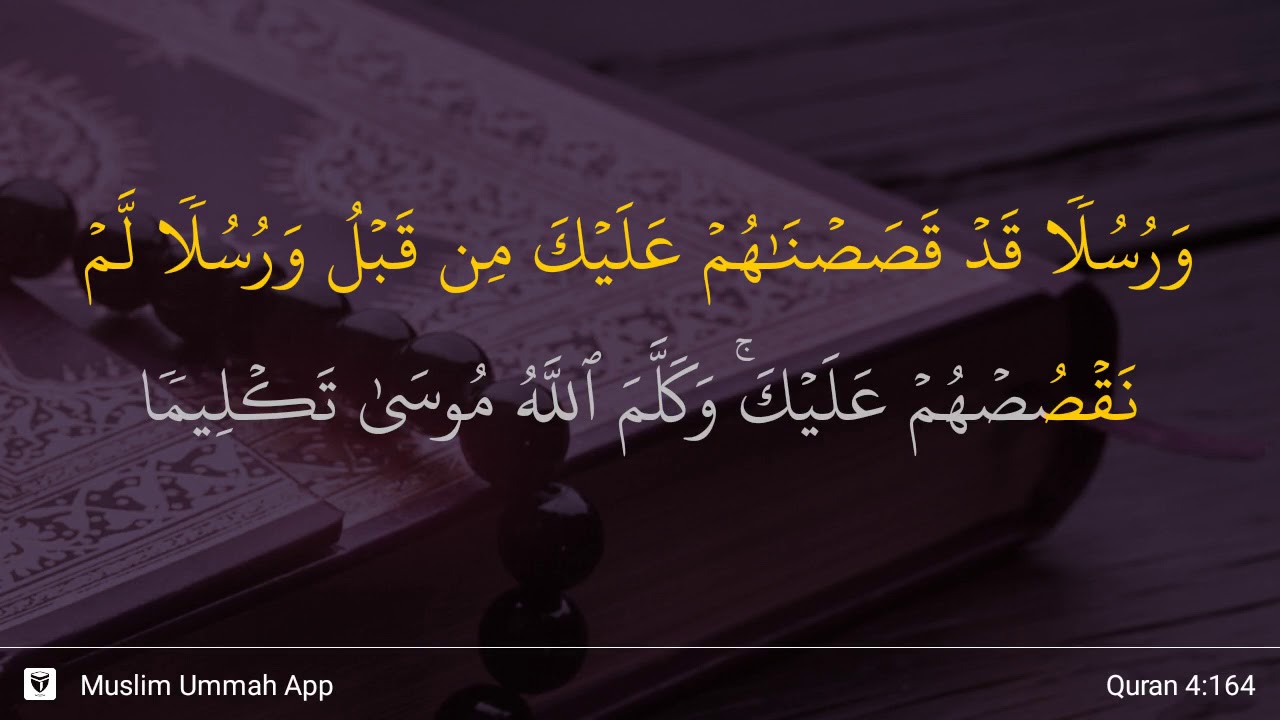 وَرُسُلٗا قَدۡ قَصَصۡنَٰهُمۡ عَلَيۡكَ مِن قَبۡلُ وَرُسُلٗا لَّمۡ
نَقۡصُصۡهُمۡ عَلَيۡكَۚ وَكَلَّمَ ٱللَّهُ مُوسَىٰ تَكۡلِيمٗا
Muslim Ummah App
Quran 4:164